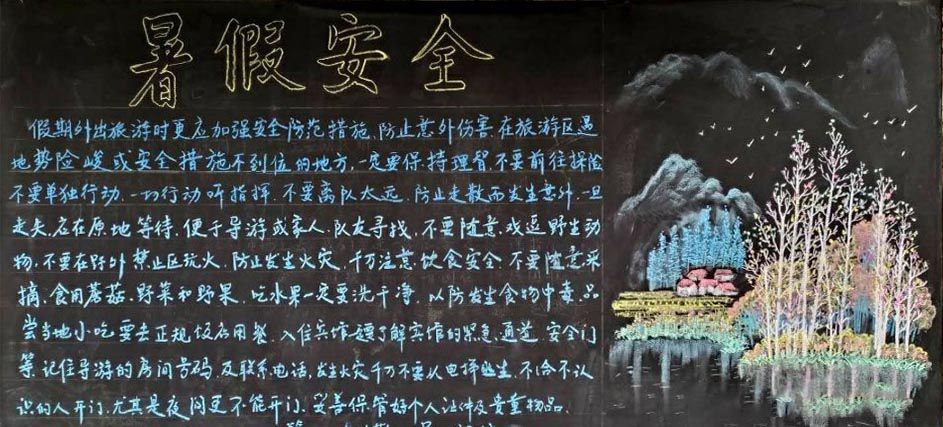 暑假安全
假期外出旅游时更应加强安全防范措施、防止意外伤害在旅游区遇
地势险峻或安全措施不到位的地方,一定要保持理智不要前往探险
不要单独行动、一切行动听指挥、不要离队太远、防止走散而发生意外、一旦
走失、应在原地等待、便于导游或家人、队友寻找、不要随意戏逗野生动
物、不要在野外禁止区玩火、防止发生火灾、千万注意饮食安全、不要随意采
摘、食用蘑菇、野菜和野果、吃水果一定要洗干净、以防发生食物中毒、品
尝当地小吃要去正规饭店用餐、入住宾馆要了解宾馆的紧急通道、安全门
等、记住导游的房间号码及联系电话,发生火灾千万不要从电梯逃生、不给不认
识的人开门、尤其是夜间更不能开门、妥善保管好个人证件及贵重物品、